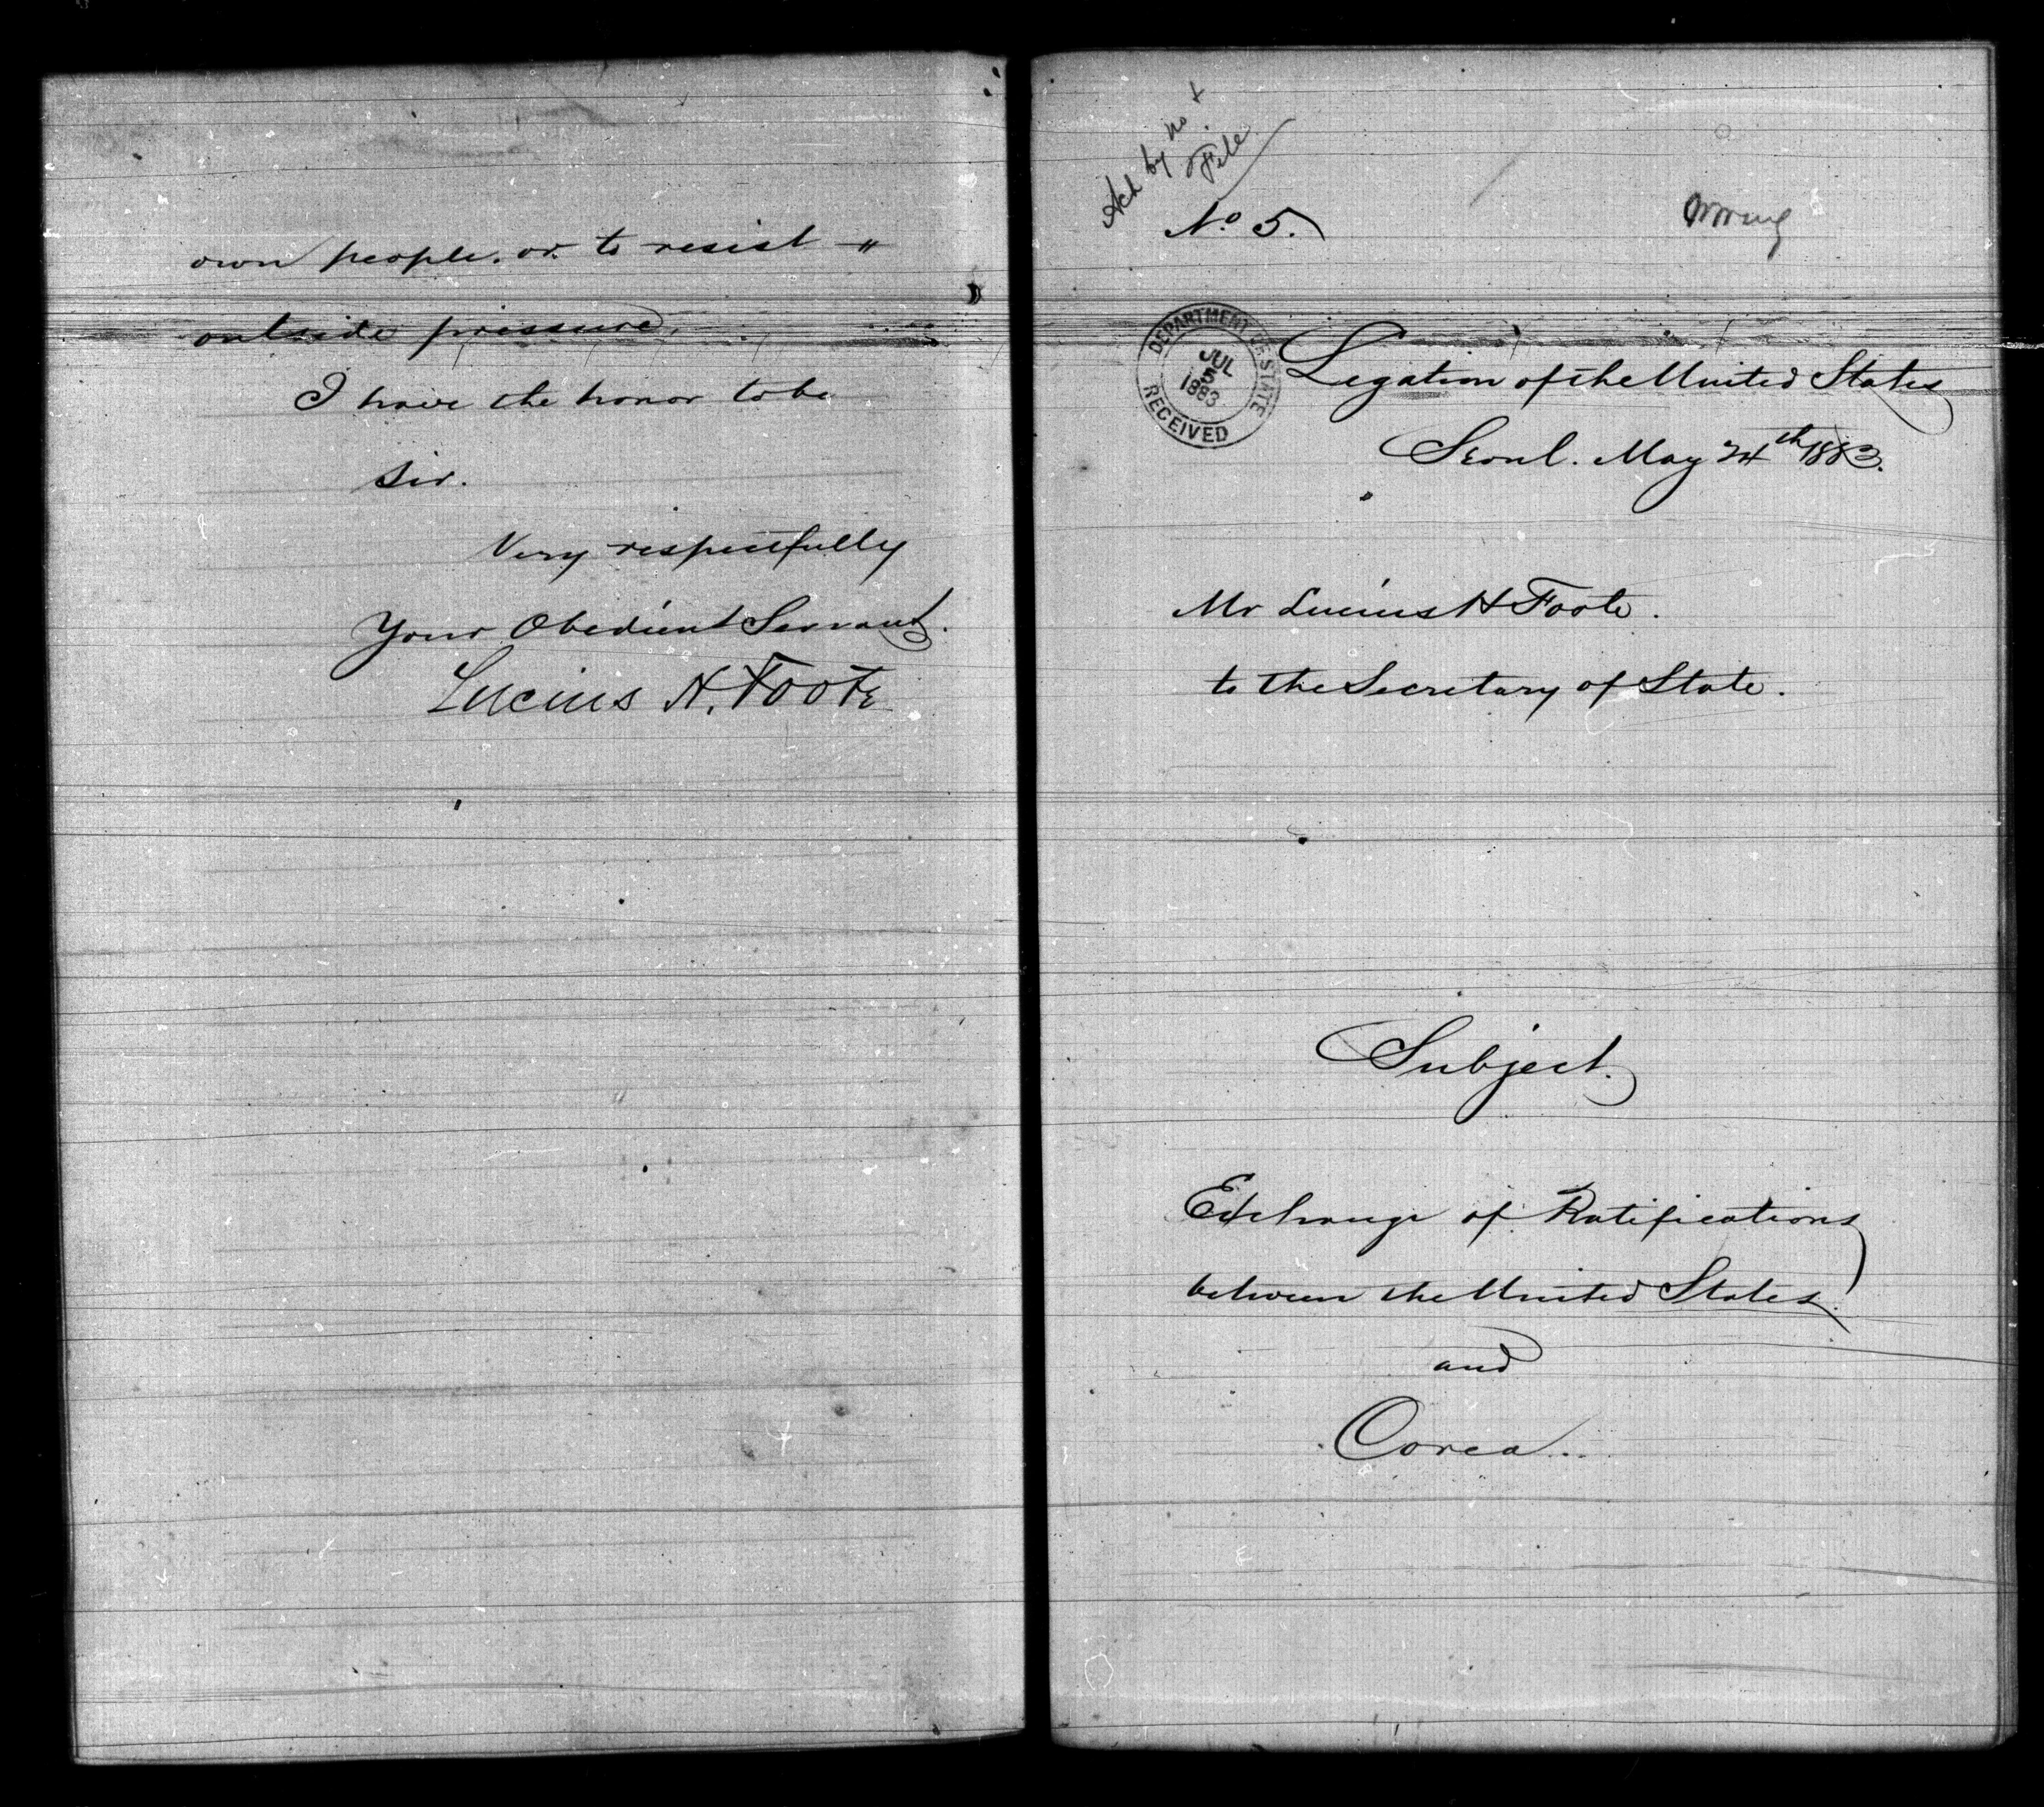 own people. or to resist "
outside pressure.
I have the honor to be
Sir.
Very respectfully
Your Obedient Servant.
Lucius H. Foote
Ack by No 1
File
No 5.
DEPARTMENT OF STATE
JUL
5
1883
RECEIVED
Legation of the United States
Seoul. May 24th 1883.
Mr Lucius H Foote.
to the Secretary of State.
Subject.
Exchange of Ratifications
between the United States.
and
Corea.